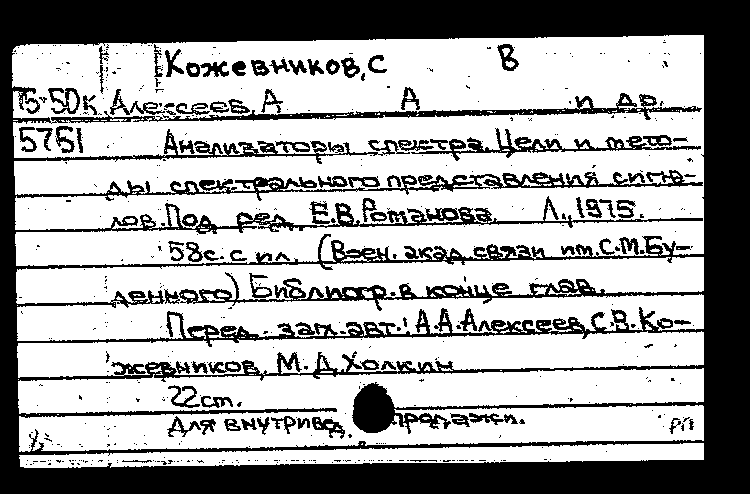 Кожевников, С В
75-50к Алексеев, А А и др.
5751 Анализаторы спектра. Цели и мето-
ды спектрального представления сигна-
лов. Под ред. Е.В. Романова. Л., 1975.
58с. с ил. (Воен. акад. связи им. С.М. Бу-
денного) Библиогр. в конце глав.
Перед загл. авт.: А.А. Алексеев, С.В. Ко-
жевников, М.Д. Холкин
22 см.
Для внутривед. продажи. РП